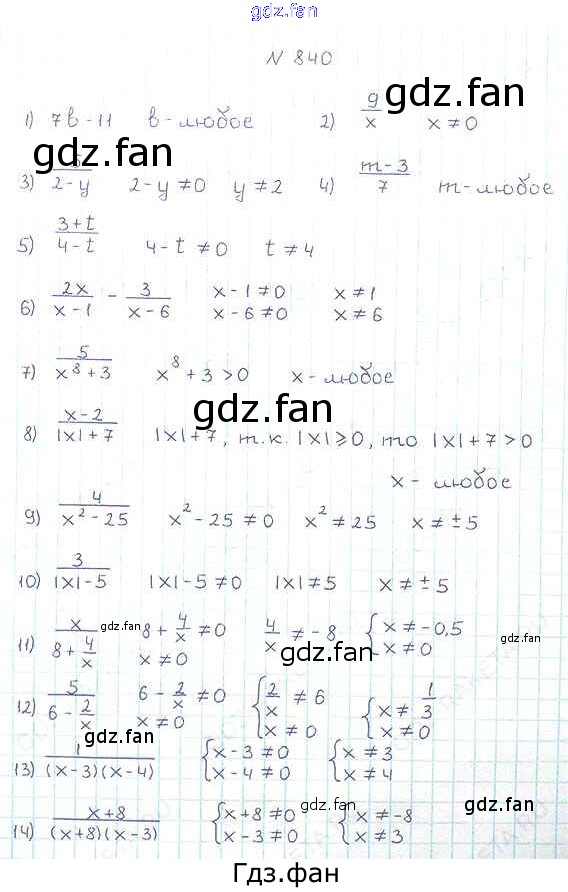 gdz.fan
N 840
1) 7b - 11 b - любое 2) 9/x x ≠ 0
gdz.fan
gdz.fan
3) 5/(2 - y) 2 - y ≠ 0 y ≠ 2 4) (m - 3)/7 m - любое
5) (3 + t)/(4 - t) 4 - t ≠ 0 t ≠ 4
6) 2x/(x - 1) - 3/(x - 6) x - 1 ≠ 0 x ≠ 1
x - 6 ≠ 0 x ≠ 6
7) 5/(x⁸ + 3) x⁸ + 3 > 0 x - любое
gdz.fan
8) (x - 2)/(|x| + 7) |x| + 7, т.к. |x| ⩾ 0, то |x| + 7 > 0
x - любое
gdz.fan
9) 4/(x² - 25) x² - 25 ≠ 0 x² ≠ 25 x ≠ ± 5
10) 3/(|x| - 5) |x| - 5 ≠ 0 |x| ≠ 5 x ≠ ± 5
gdz.fan
11) x/(8 + 4/x) 8 + 4/x ≠ 0 4/x ≠ - 8 { x ≠ -0,5
x ≠ 0 x ≠ 0
gdz.fan
12) 5/(6 - 2/x) 6 - 2/x ≠ 0 { 2/x ≠ 6 { x ≠ 1/3
x ≠ 0 x ≠ 0 x ≠ 0
gdz.fan
13) 1/((x - 3)(x - 4)) { x - 3 ≠ 0 { x ≠ 3
x - 4 ≠ 0 x ≠ 4
gdz.fan
14) (x + 8)/((x + 8)(x - 3)) { x + 8 ≠ 0 { x ≠ -8
x - 3 ≠ 0 x ≠ 3
Гдз.фан